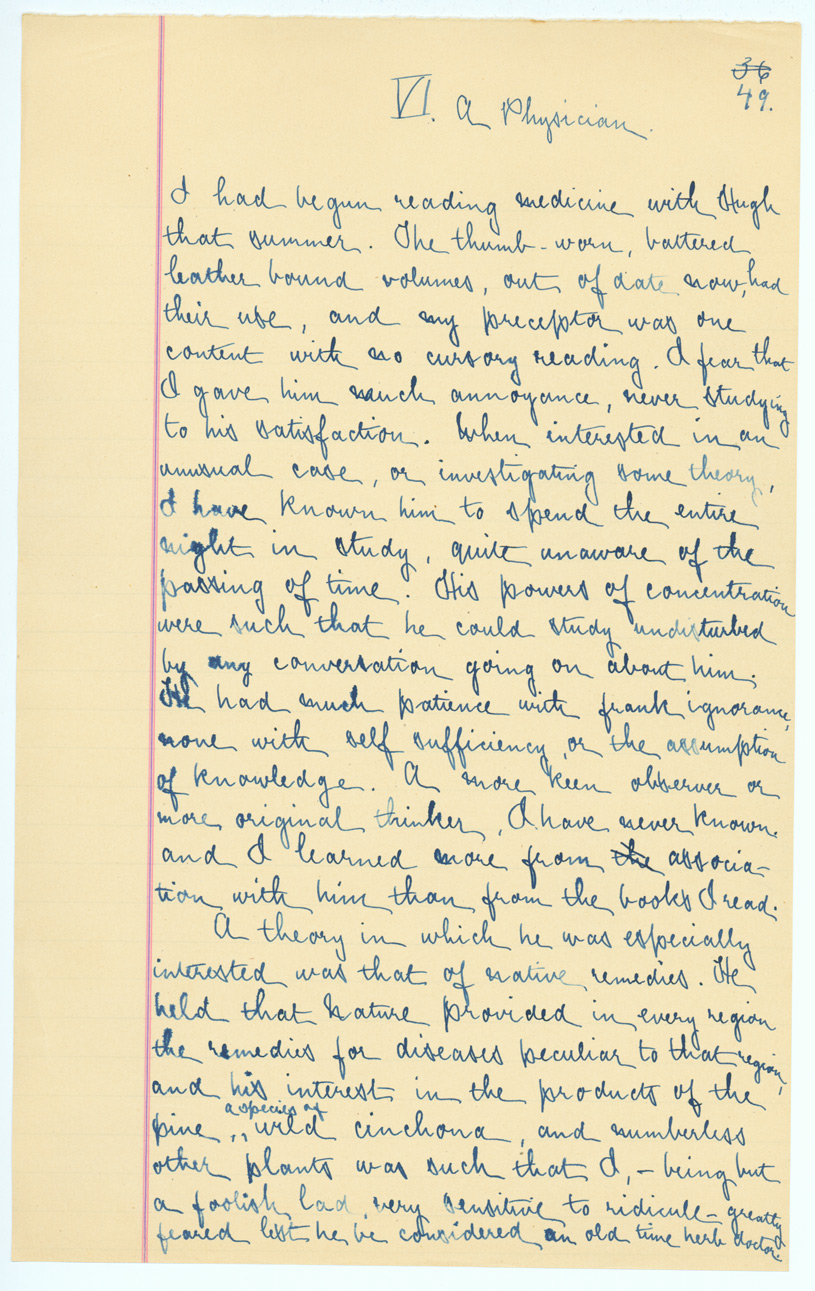 36
49.
VI. A Physician.
I had begun reading medicine with Hugh
that summer. The thumb-worn, battered
leather bound volumes, out of date now, had
their use, and my preceptor was one
content with no cursory reading. I fear that
I gave him much annoyance, never studying
to his satisfaction. When interested in an
unusual case, or investigating some theory,
I have known him to spend the entire
night in study, quite unaware of the
passing of time. His powers of concentration
were such that he could study undisturbed
by any conversation going on about him.
He had much patience with frank ignorance,
none with self sufficiency, or the assumption
of knowledge. A more keen observer or
more original thinker, I have never known.
and I learned more from the associa-
tion with him than from the books I read.
A theory in which he was especially
interested was that of native remedies. He
held that Nature provided in every region
the remedies for diseases peculiar to that region,
and his interest in the products of the
a species of
pine, wild cinchona, and numberless
other plants was such that I, - being but
a foolish lad, very sensitive to ridicule - greatly
feared lest he be considered an old time herb doctor.